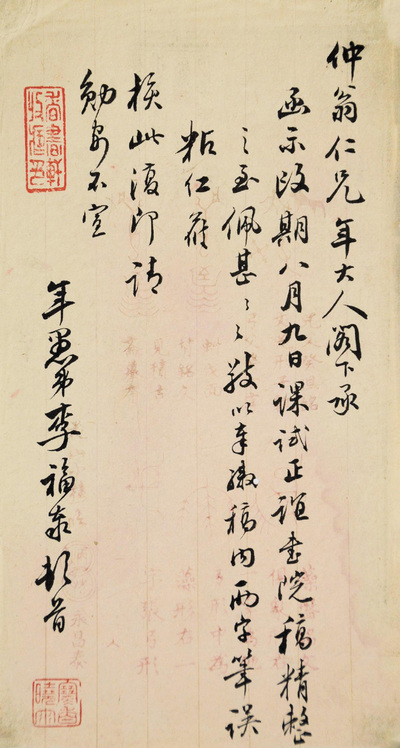 仲翁仁兄年大人閣下承
函示改期八月九日課試正誼書院稿精整
之至佩甚〻茲以奉繳稿內兩字筆誤
粘
核此復即請
勛安不宣
年愚弟李福泰頓首
香書軒收藏印